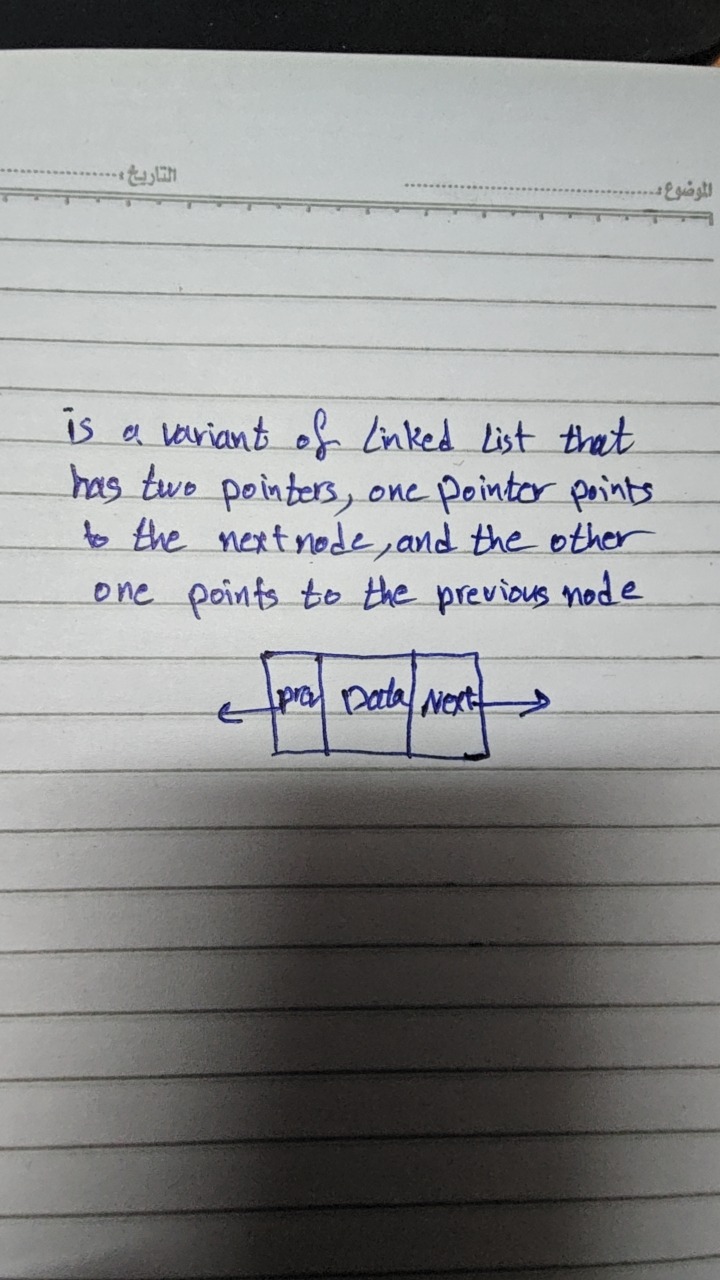 الموضوع: التاريخ:
is a variant of Linked List that
has two pointers, one pointer points
to the next node, and the other
one points to the previous node
prev Data Next